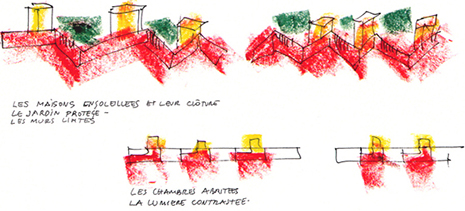 LES MAISONS ENSOLEILLEES ET LEUR CLÔTURE
LE JARDIN PROTEGE -
LES MURS LIMITES
LES CHAMBRES ABRITEES
LA LUMIERE CONTRASTEE.